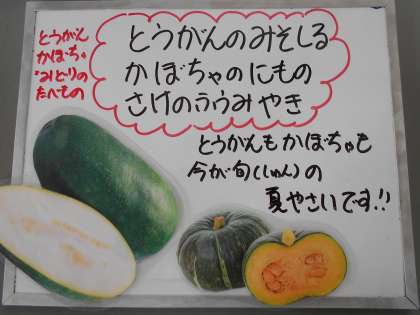 とうがん
かぼちゃ
みどりの
たべもの
とうがんのみそしる
かぼちゃのにもの
さけのふうみやき
とうがんもかぼちゃも
今が旬(しゅん)の
夏やさいです!!